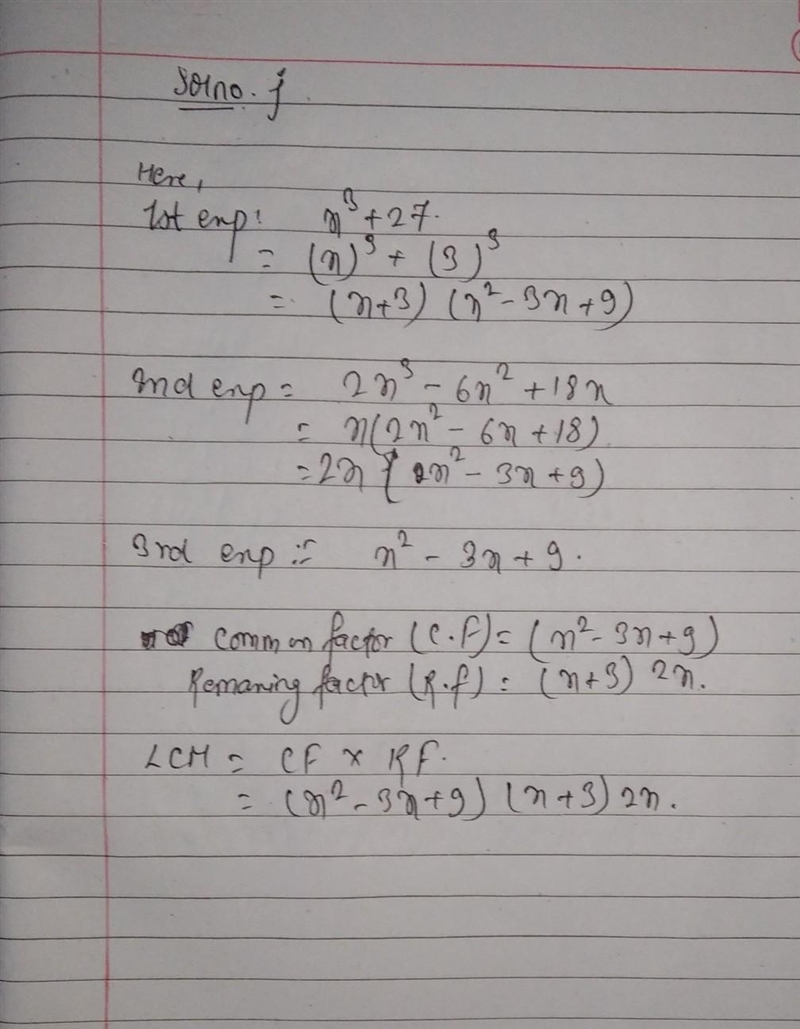 Solno. j.
Here,
1st exp: x³ + 27.
= (x)³ + (3)³
= (x+3) (x² - 3x + 9)
2nd exp = 2x³ - 6x² + 18x
= x(2x² - 6x + 18)
= 2x (x² - 3x + 9)
3rd exp := x² - 3x + 9.
Common factor (C.F) = (x² - 3x + 9)
Remaning factor (R.f) = (x+3) 2x.
LCM = CF × RF.
= (x² - 3x + 9) (x+3) 2x.